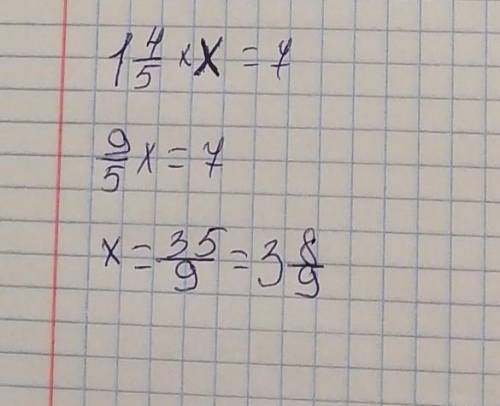 1 4/5 × x = 7
9/5 x = 7
x = 35/9 = 3 8/9